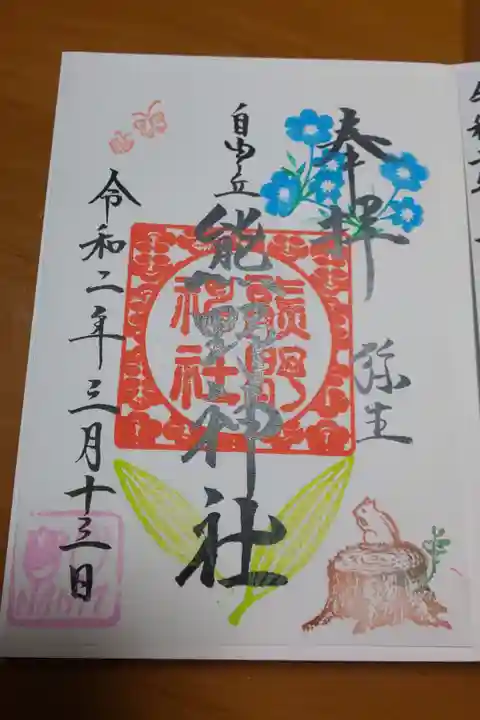 奉拝
弥生
自由丘
熊野神社
熊野
神社
令和二年三月十三日
令和二年